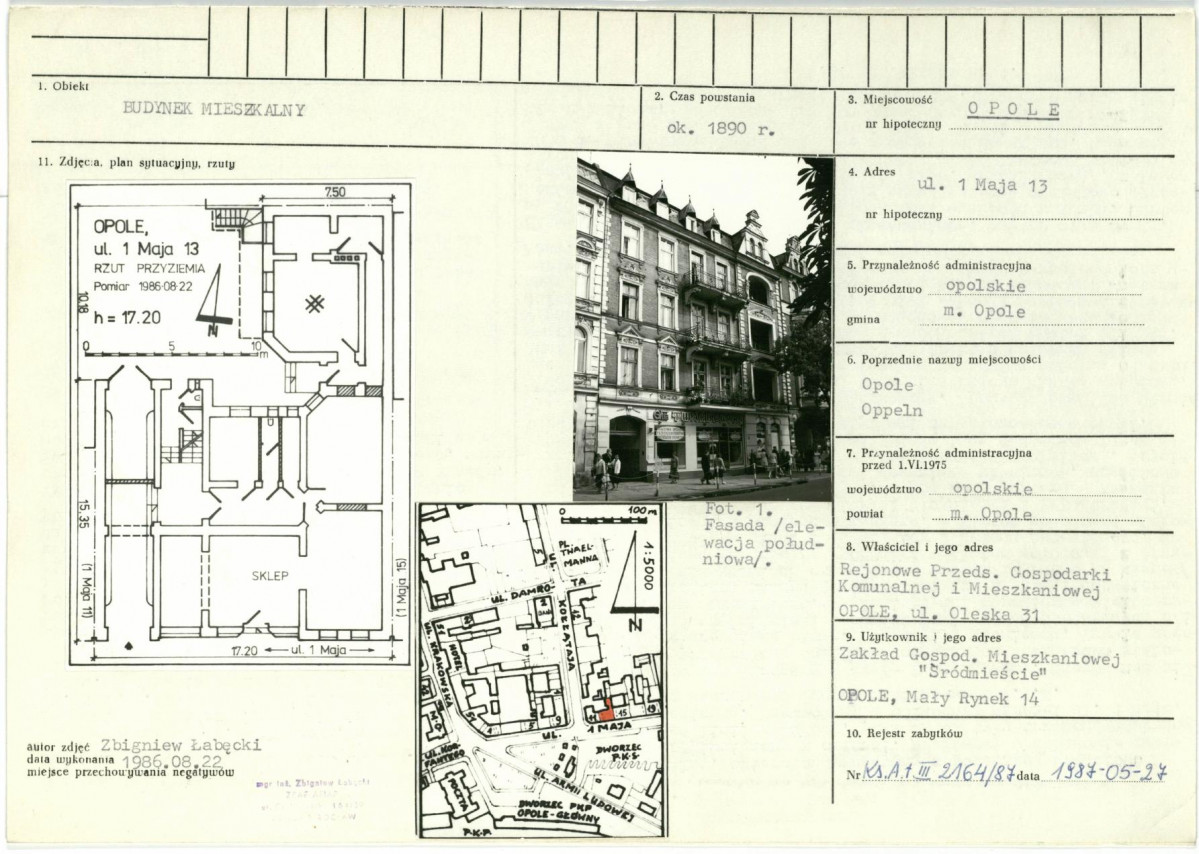 1. Obiekt
BUDYNEK MIESZKALNY
2. Czas powstania
ok. 1890 r.
3. Miejscowość
OPOLE
nr hipoteczny
11. Zdjęcia, plan sytuacyjny, rzuty
7.50
OPOLE,
ul. 1 Maja 13
RZUT PRZYZIEMIA
Pomiar 1986-08-22
h = 17.20
N
10.18
0 5 10 m
15.35
(1 Maja 11)
SKLEP
(1 Maja 15)
17.20 ul. 1 Maja
Fot. 1.
Fasada /ele-
wacja połud-
niowa/.
0 100 m
1:5000
N
PL. THAEL-
MANNA
UL. DAMROTA
UL. KOŁŁĄTAJA
UL. KRAKOWSKA
HOTEL
UL. 1 MAJA
11 15 19
DWORZEC
P.K.S.
UL. KOR-
FANTEGO
UL. ARMII LUDOWEJ
POCZTA
DWORZEC PKP
OPOLE-GŁÓWNY
P.K.P.
4. Adres
ul. 1 Maja 13
nr hipoteczny
5. Przynależność administracyjna
województwo opolskie
gmina m. Opole
6. Poprzednie nazwy miejscowości
Opole
Oppeln
7. Przynależność administracyjna
przed 1.VI.1975
województwo opolskie
powiat m. Opole
8. Właściciel i jego adres
Rejonowe Przeds. Gospodarki
Komunalnej i Mieszkaniowej
OPOLE, ul. Oleska 31
9. Użytkownik i jego adres
Zakład Gospod. Mieszkaniowej
"Śródmieście"
OPOLE, Mały Rynek 14
10. Rejestr zabytków
Nr Ks.A t III 2164/87 data 1987-05-27
autor zdjęć Zbigniew Łabęcki
data wykonania 1986.08.22
miejsce przechowywania negatywów
mgr inż. Zbigniew Łabęcki